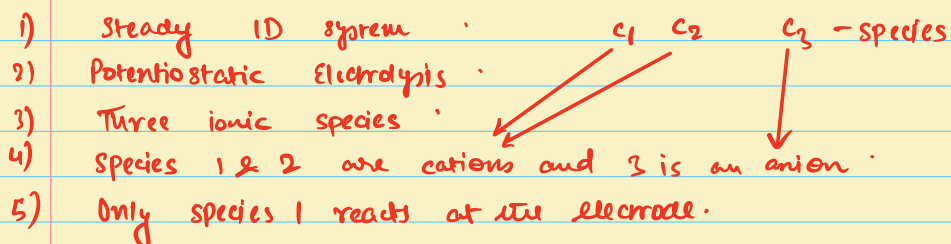 1) Steady 1D system . C1 C2 C3 - species
2) Potentiostatic Electrolysis .
3) Three ionic species .
4) Species 1 & 2 are cations and 3 is an anion .
5) Only species 1 reacts at the electrode.